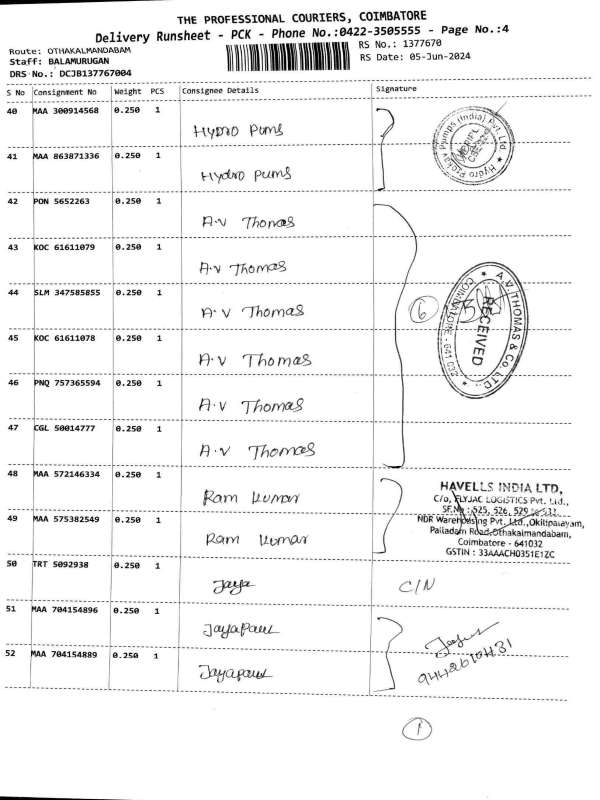 THE PROFESSIONAL COURIERS, COIMBATORE
Delivery Runsheet - PCK - Phone No.:0422-3505555 - Page No.:4
Route: OTHAKALMANDABAM
RS No.: 1377670
Staff: BALAMURUGAN
RS Date: 05-Jun-2024
DRS No.: DCJB137767004
S No Consignment No Weight PCS Consignee Details Signature
40 MAA 300914568 0.250 1
Hydro Pums
Hydro Prokav Pumps (India) Pvt. Ltd
41 MAA 863871336 0.250 1
Hydro Pums
42 PON 5652263 0.250 1
A.V Thomas
43 KOC 61611079 0.250 1
A.V Thomas
44 SLM 347585855 0.250 1
A.V Thomas
6
A.V. THOMAS & Co. LTD.,
RECEIVED
COIMBATORE - 641
45 KOC 61611078 0.250 1
A.V Thomas
46 PNQ 757365594 0.250 1
A.V Thomas
47 CGL 50014777 0.250 1
A.V Thomas
48 MAA 572146334 0.250 1
Ram Kumar
HAVELLS INDIA LTD,
C/o, FLYJAC LOGISTICS Pvt. Ltd.,
SF.No : 525, 526, 529
49 MAA 575382549 0.250 1
Ram Kumar
NDR Warehousing Pvt. Ltd.,Okilipalayam,
Palladam Road,Othakalmandabam,
Coimbatore - 641032
GSTIN : 33AAACH0351E1ZC
50 TRT 5092938 0.250 1
Jaya
C/N
51 MAA 704154896 0.250 1
Jayapaul
52 MAA 704154889 0.250 1
Jayapaul
9442610431
1